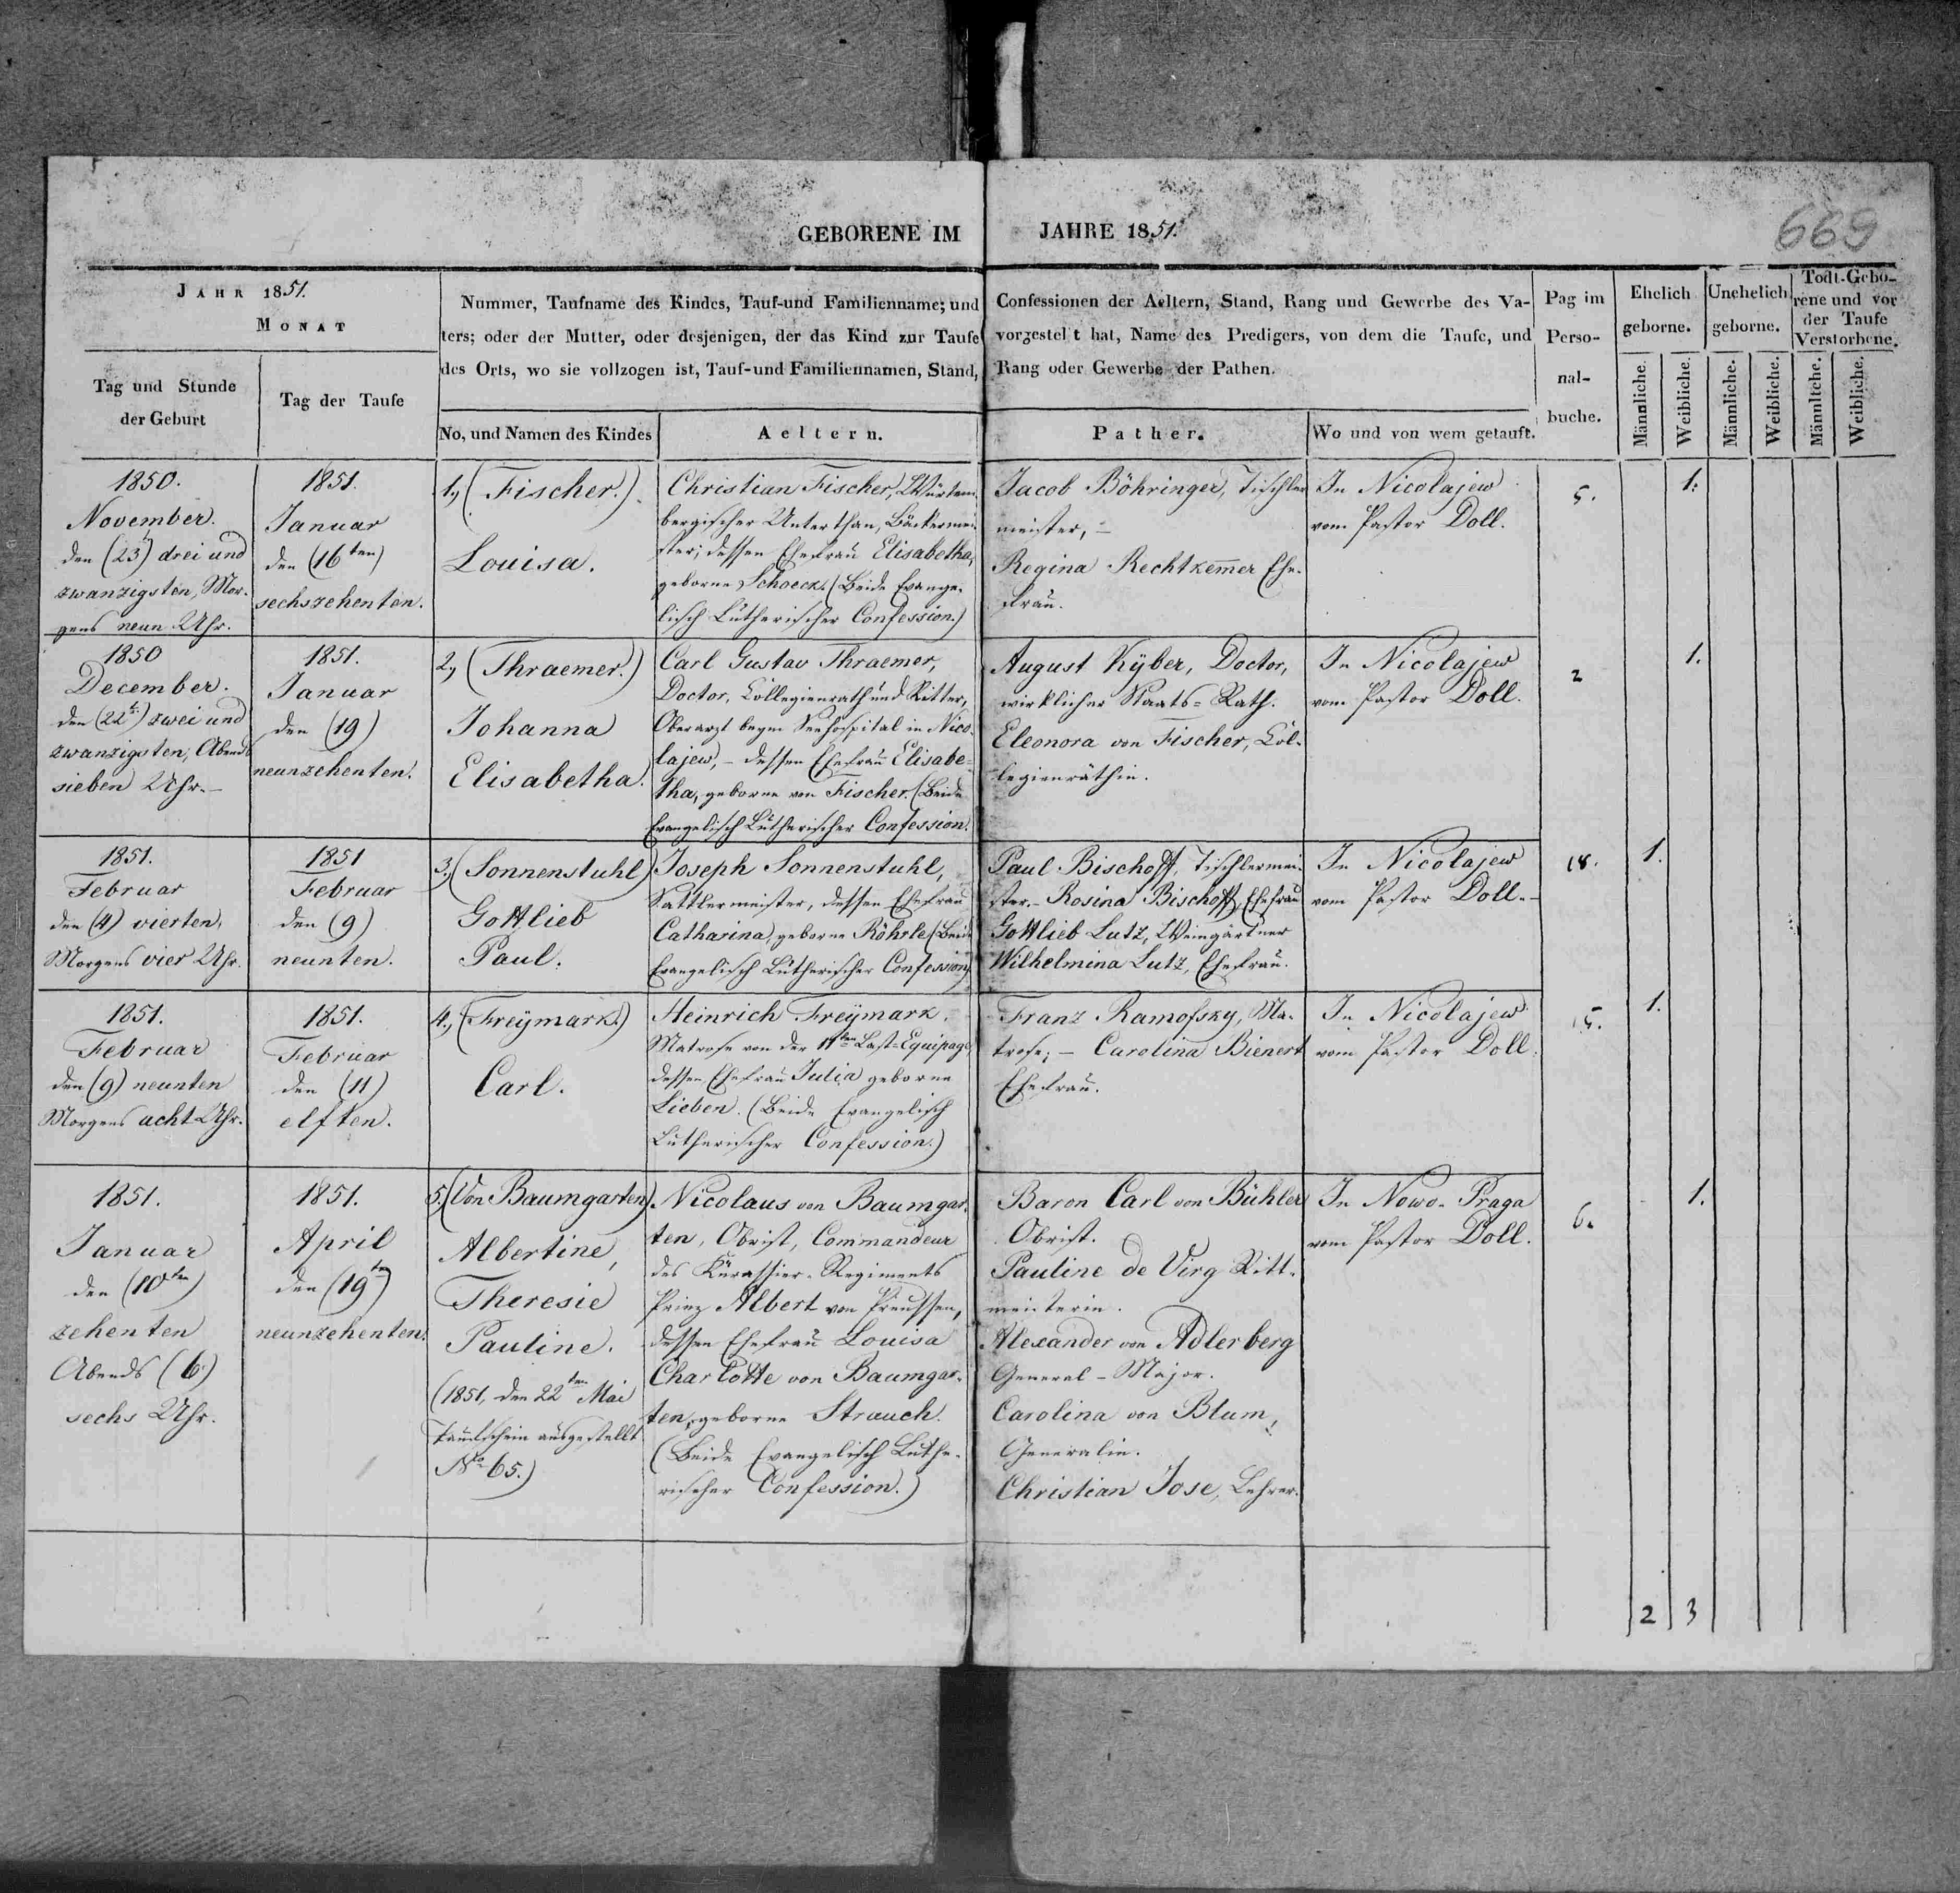 GEBORENE IM JAHRE 1851.
669
JAHR 1851.
MONAT
Tag und Stunde
der Geburt
Tag der Taufe
Nummer, Taufname des Kindes, Tauf-und Familienname; und Confessionen der Aeltern, Stand, Rang und Gewerbe des Va-
ters; oder der Mutter, oder desjenigen, der das Kind zur Taufe vorgestellt hat, Name des Predigers, von dem die Taufe, und
des Orts, wo sie vollzogen ist, Tauf-und Familiennamen, Stand, Rang oder Gewerbe der Pathen.
No, und Namen des Kindes
Aeltern.
Pather.
Wo und von wem getauft.
Pag im
Perso-
nal-
buche.
Ehelich
geborne.
Unehelich
geborne.
Todt-Gebo-
rene und vor
der Taufe
Verstorbene.
Männliche.
Weibliche.
Männliche.
Weibliche.
Männliche.
Weibliche.
1850.
November.
den (23) drei und
zwanzigsten, Mor-
gens neun Uhr.
1851.
Januar
den (16ten)
sechszehenten.
1., (Fischer.)
Louisa.
Christian Fischer, Würtem-
bergischer Unterthan, Bäckermei-
ster; dessen Ehefrau Elisabetha,
geborne Schoeck. (Beide Evange-
lisch Lutherischer Confession.)
Jacob Böhringer, Tischler
meister, –
Regina Rechtkemer Ehe-
frau.
In Nicolajew
vom Pastor Doll.
5.
1.
1850
December.
den (22t.) zwei und
zwanzigsten, Abends
sieben Uhr. –
1851.
Januar
den (19)
neunzehenten.
2., (Thraemer.)
Johanna
Elisabetha.
Carl Gustav Thraemer,
Doctor, Collegienrath und Ritter,
Oberarzt beym Seehospital in Nico
lajew, – dessen Ehefrau Elisabe=
tha, geborne von Fischer. (Beide
Evangelisch Lutherischer Confession.
August Kÿber, Doctor,
wirklicher Staats=Rath.
Eleonora von Fischer, Col-
legienräthin.
In Nicolajew
vom Pastor Doll.
2
1.
1851.
Februar
den (4) vierten,
Morgens vier Uhr.
1851
Februar
den (9)
neunten.
3., (Sonnenstuhl)
Gottlieb
Paul.
Joseph Sonnenstuhl,
Sattlermeister, dessen Ehefrau
Catharina, geborne Röhrle (Beide
Evangelisch Lutherischer Confession)
Paul Bischoff, Tischlermei-
ster. – Rosina Bischoff, Ehefrau
Gottlieb Lutz, Weingärtner
Wilhelmina Lutz, Ehefrau.
In Nicolajew
vom Pastor Doll. –
18.
1.
1851.
Februar
den (9) neunten
Morgens acht Uhr.
1851.
Februar
den (11)
elften.
4., (Freÿmark.)
Carl.
Heinrich Freÿmark,
Matrose von der 11ten Last=Equipage,
dessen Ehefrau Julia geborne
Lieben. (Beide Evangelisch
Lutherischer Confession.)
Franz Ramofsky, Ma-
trose; – Carolina Bienert
Ehefrau.
In Nicolajew
vom Pastor Doll.
15.
1.
1851.
Januar
den (10ten)
zehenten
Abends (6)
sechs Uhr.
1851.
April
den (19ten)
neunzehenten.
5. (Von Baumgarten)
Albertine,
Theresie
Pauline.
(1851, den 22ten Mai
Taufschein ausgestellt
No 65.)
Nicolaus von Baumgar-
ten, Obrist, Commandeur
des Kürassier-Regiments
Prinz Albert von Preussen,
dessen Ehefrau Louisa
Charlotte von Baumgar-
ten, geborne Strauch.
(Beide Evangelisch Luthe-
rischer Confession.)
Baron Carl von Bühler
Obrist.
Pauline de Virg Ritt-
meisterin.
Alexander von Adlerberg
General-Major.
Carolina von Blum,
Generalin.
Christian Jose, Lehrer.
In Nowo-Praga
vom Pastor Doll.
6.
1.
2 3